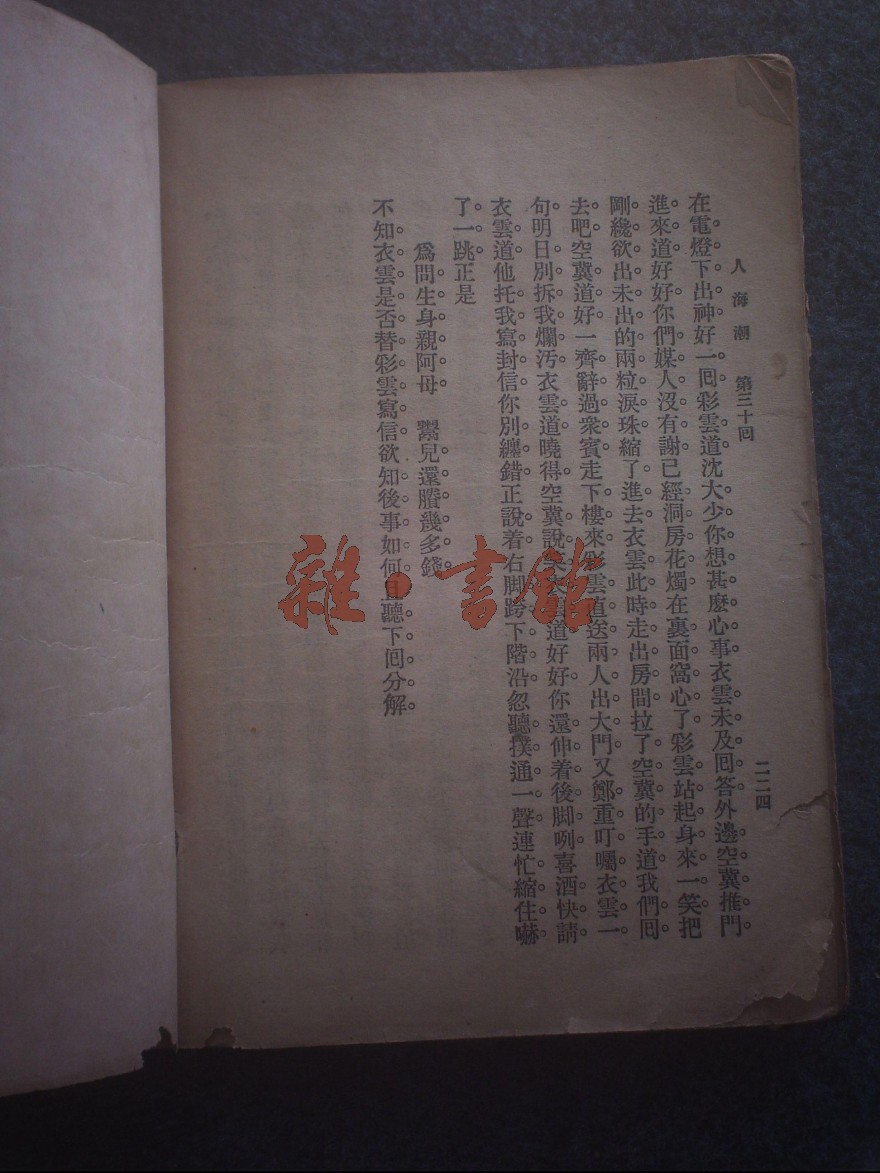 人海潮　第三十回　二二四
在電燈下出神好一囘彩雲道沈大少你想甚麽心事衣雲未及囘答外邊空冀推門
進來道好好你們媒人沒有謝已經洞房花燭在裏面窩心了彩雲站起身來一笑把
剛纔欲出未出的兩粒淚珠縮了進去衣雲此時走出房間拉了空冀的手道我們囘
去吧空冀道好一齊辭過衆賓走下樓來彩雲直送兩人出大門又鄭重叮囑衣雲一
句明日別拆我爛汚衣雲道曉得空冀說道好好你還伸着後脚咧喜酒快請
衣雲道他托我寫封信你別纏錯正說着右脚跨下階沿忽聽撲通一聲連忙縮住嚇
了一跳正是
爲問生身親阿母　鬻兒還賸幾多錢
不知衣雲是否替彩雲寫信欲知後事如何且聽下囘分解
雜·書館